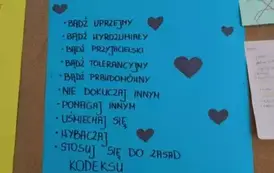 • BĄDŹ UPRZEJMY
• BĄDŹ WYROZUMIAŁY
• BĄDŹ PRZYJACIELSKI
• BĄDŹ TOLERANCYJNY
• BĄDŹ PRAWDOMÓWNY
• NIE DOKUCZAJ INNYM
• POMAGAJ INNYM
• UŚMIECHAJ SIĘ
• WYBACZAJ
• STOSUJ SIĘ DO ZASAD
KODEKSU